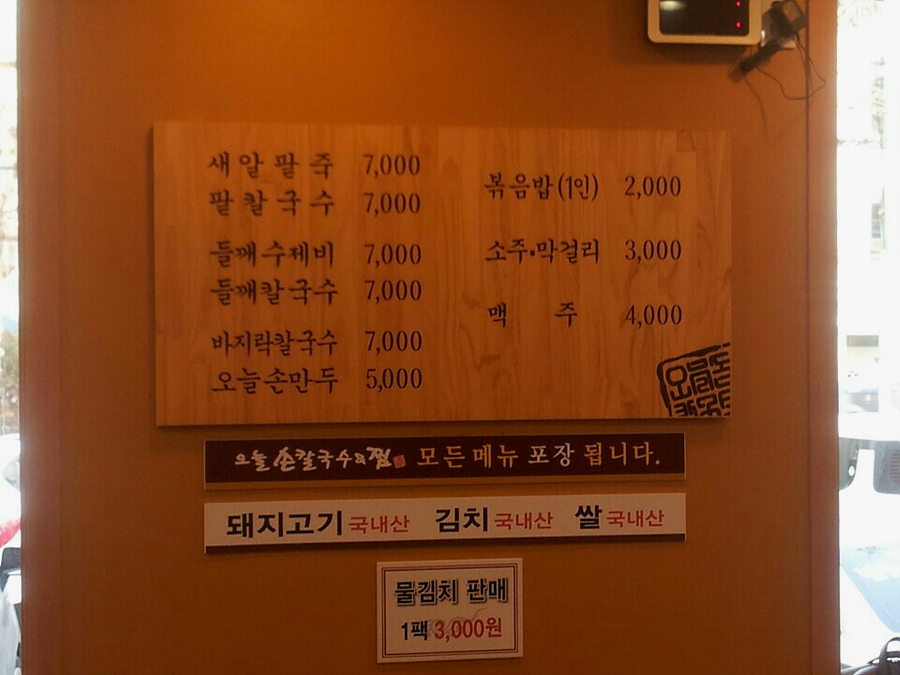 새알팥죽 7,000
팥칼국수 7,000
들깨수제비 7,000
들깨칼국수 7,000
바지락칼국수 7,000
오늘손만두 5,000
볶음밥(1인) 2,000
소주·막걸리 3,000
맥주 4,000
오늘 손칼국수&찜 모든메뉴 포장 됩니다.
돼지고기 국내산 김치 국내산 쌀 국내산
물김치 판매
1팩 3,000원